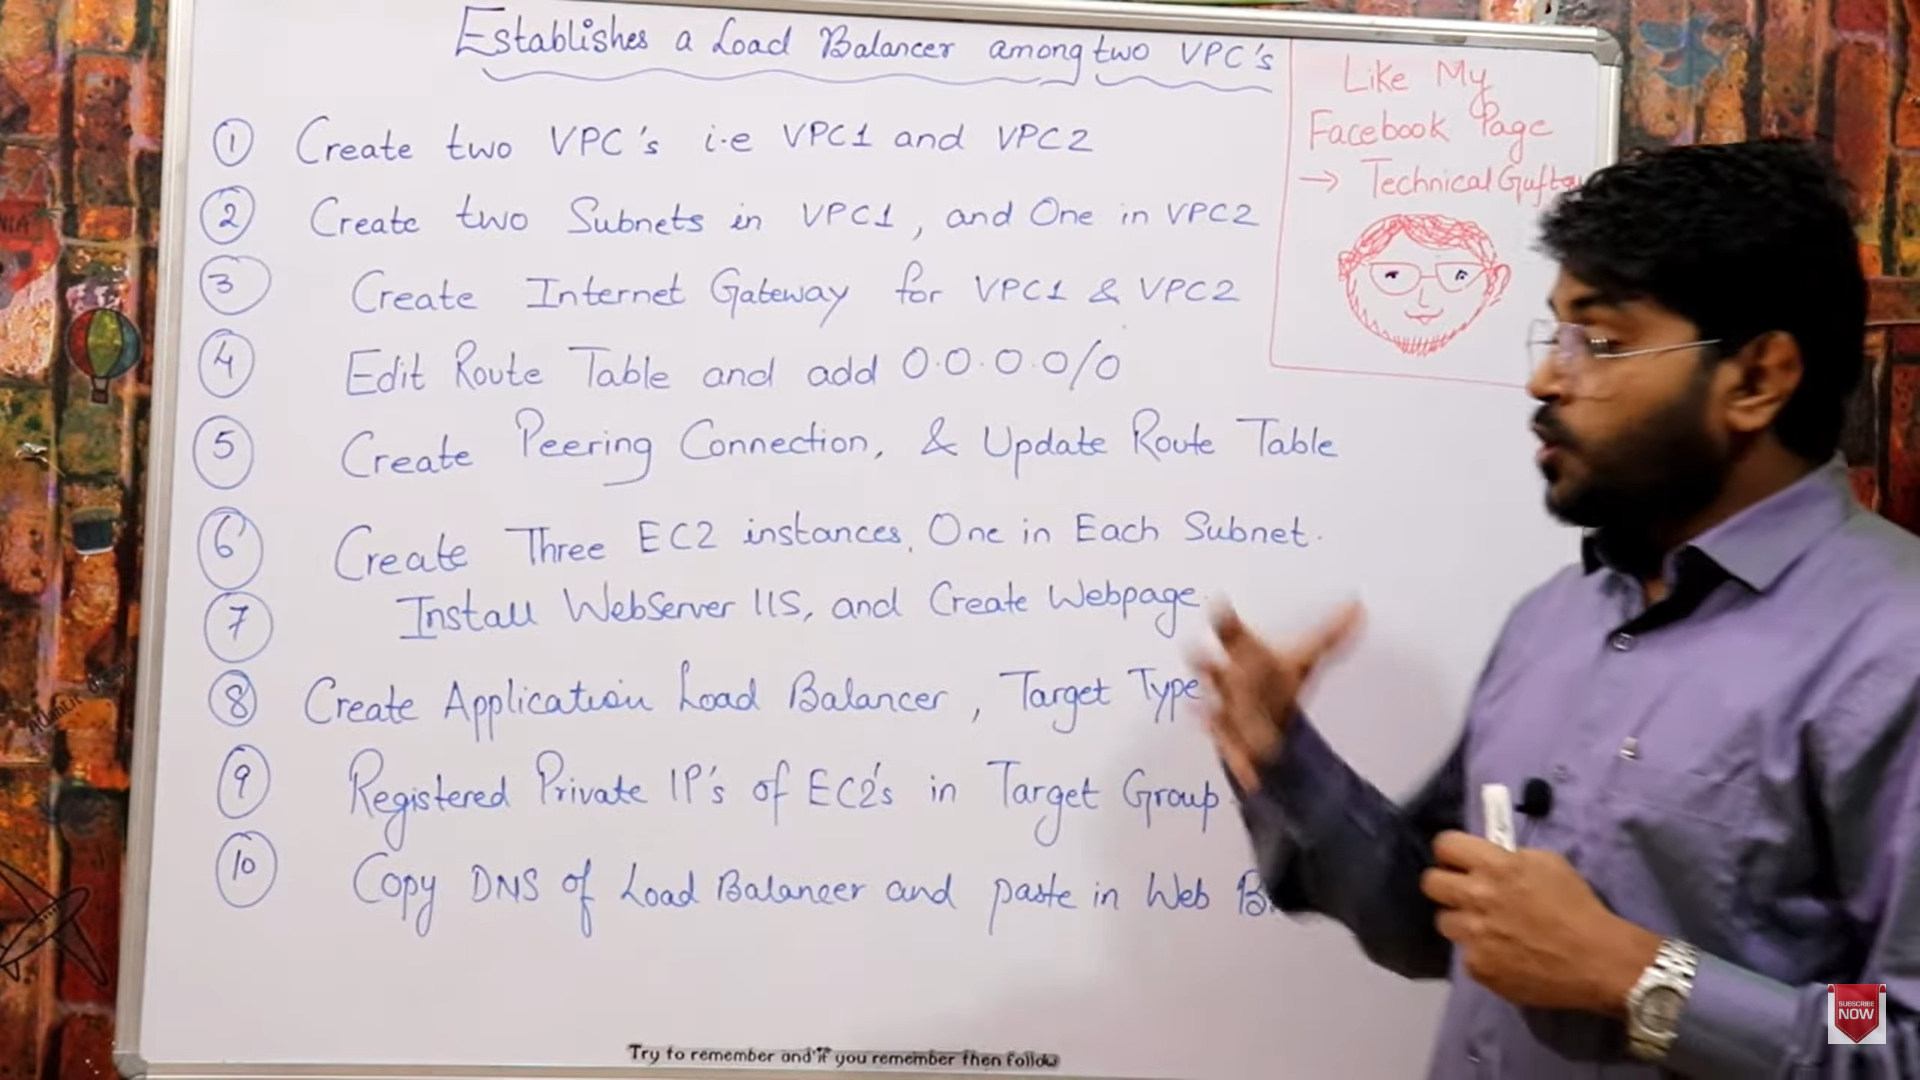 Establishes a Load Balancer among two VPC's
Like My
Facebook Page
→ Technical
① Create two VPC's i.e VPC1 and VPC2
② Create two Subnets in VPC1, and One in VPC2
③ Create Internet Gateway for VPC1 & VPC2
④ Edit Route Table and add 0.0.0.0/0
⑤ Create Peering Connection, & Update Route Table
⑥ Create Three EC2 instances, One in Each Subnet.
⑦ Install WebServer IIS, and Create Webpage.
⑧ Create Application Load Balancer, Target Type
⑨ Registered Private IP's of EC2's in Target Group.
⑩ Copy DNS of Load Balancer and paste in Web
Try to remember and if you remember then follow
SUBSCRIBE
NOW